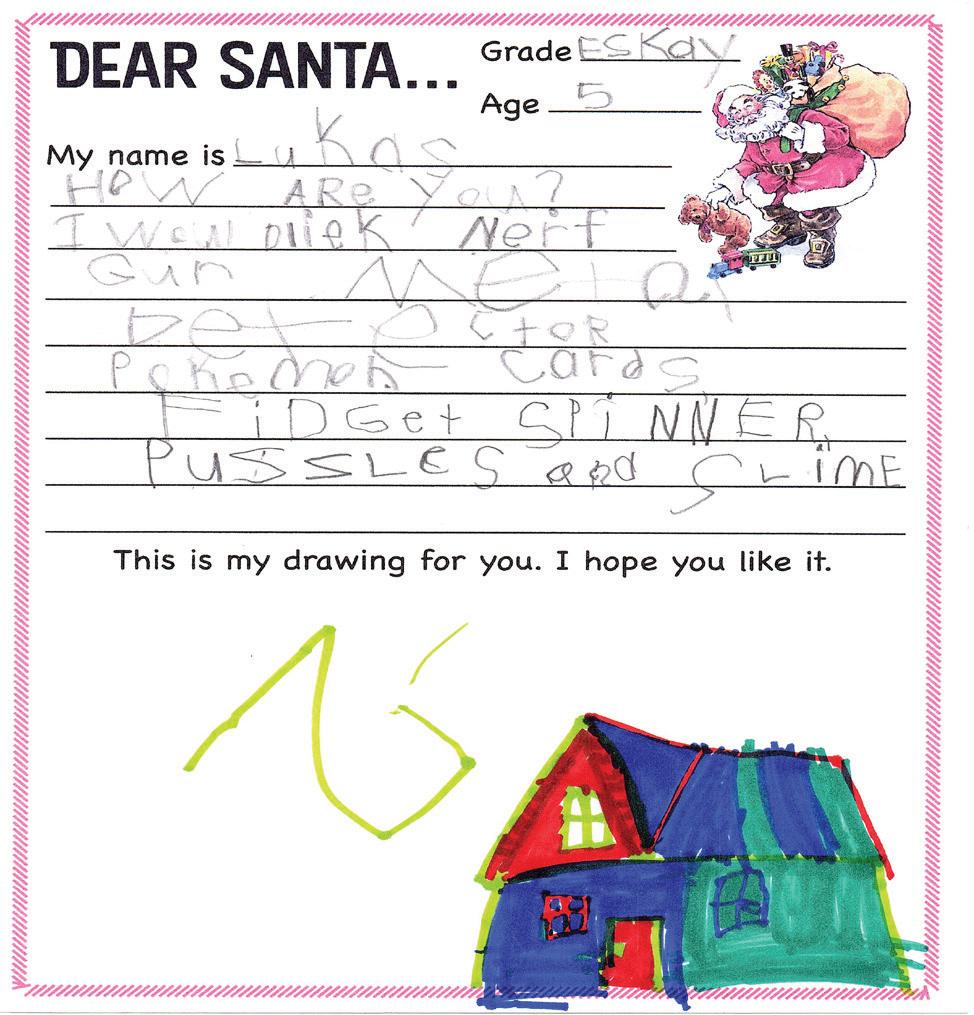 DEAR SANTA...
Grade ESKay
Age 5
My name is LuKas
HOW ARe You?
I Woul Dliek Nerf
Gun Metal
DetectoR
Pokemon Cards
FiDGet SPiNNER,
PUSSLES and SLiME
This is my drawing for you. I hope you like it.